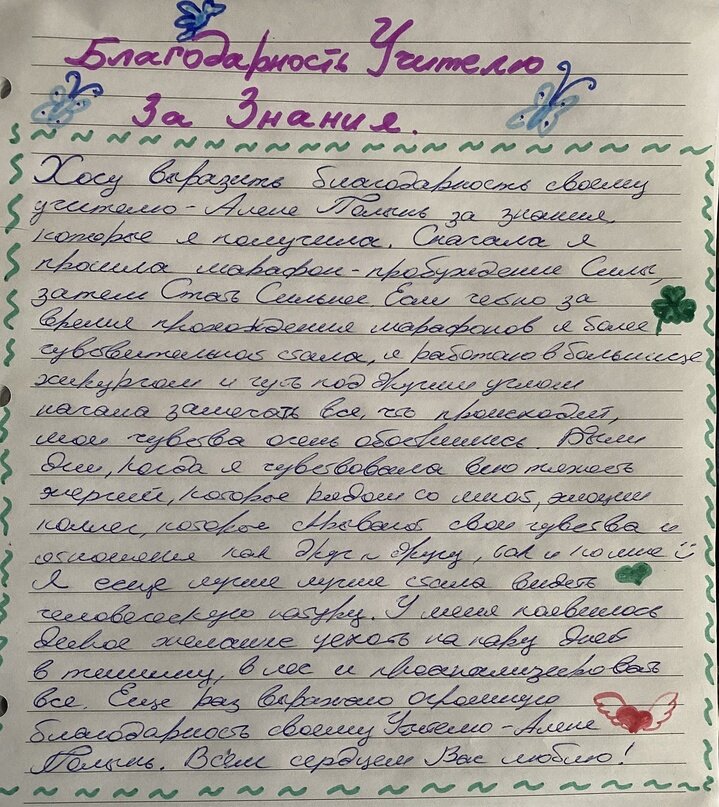 Благодарность Учителю
За Знания.
Хочу выразить благодарность своему
учителю - Алене Полынь за знания,
которые я получила. Сначала я
прошла марафон - пробуждение Силы,
затем Стать Сильнее. Если честно за
время прохождения марафонов я более
чувствительной стала, я работаю в больнице
хирургом и чуть под другим углом
начала замечать все, что происходит,
мои чувства очень обострились. Были
дни, когда я чувствовала всю тяжесть
энергий, которые рядом со мной, эмоции
коллег, которые скрывают свои чувства и
отношения как друг к другу, так и ко мне
Я еще лучше лучше стала видеть
человеческую натуру. У меня появилось
дикое желание уехать на пару дней
в тишину, в лес и проанализировать
все. Еще раз выражаю огромную
благодарность своему Учителю - Алене
Полынь. Всем сердцем Вас люблю!